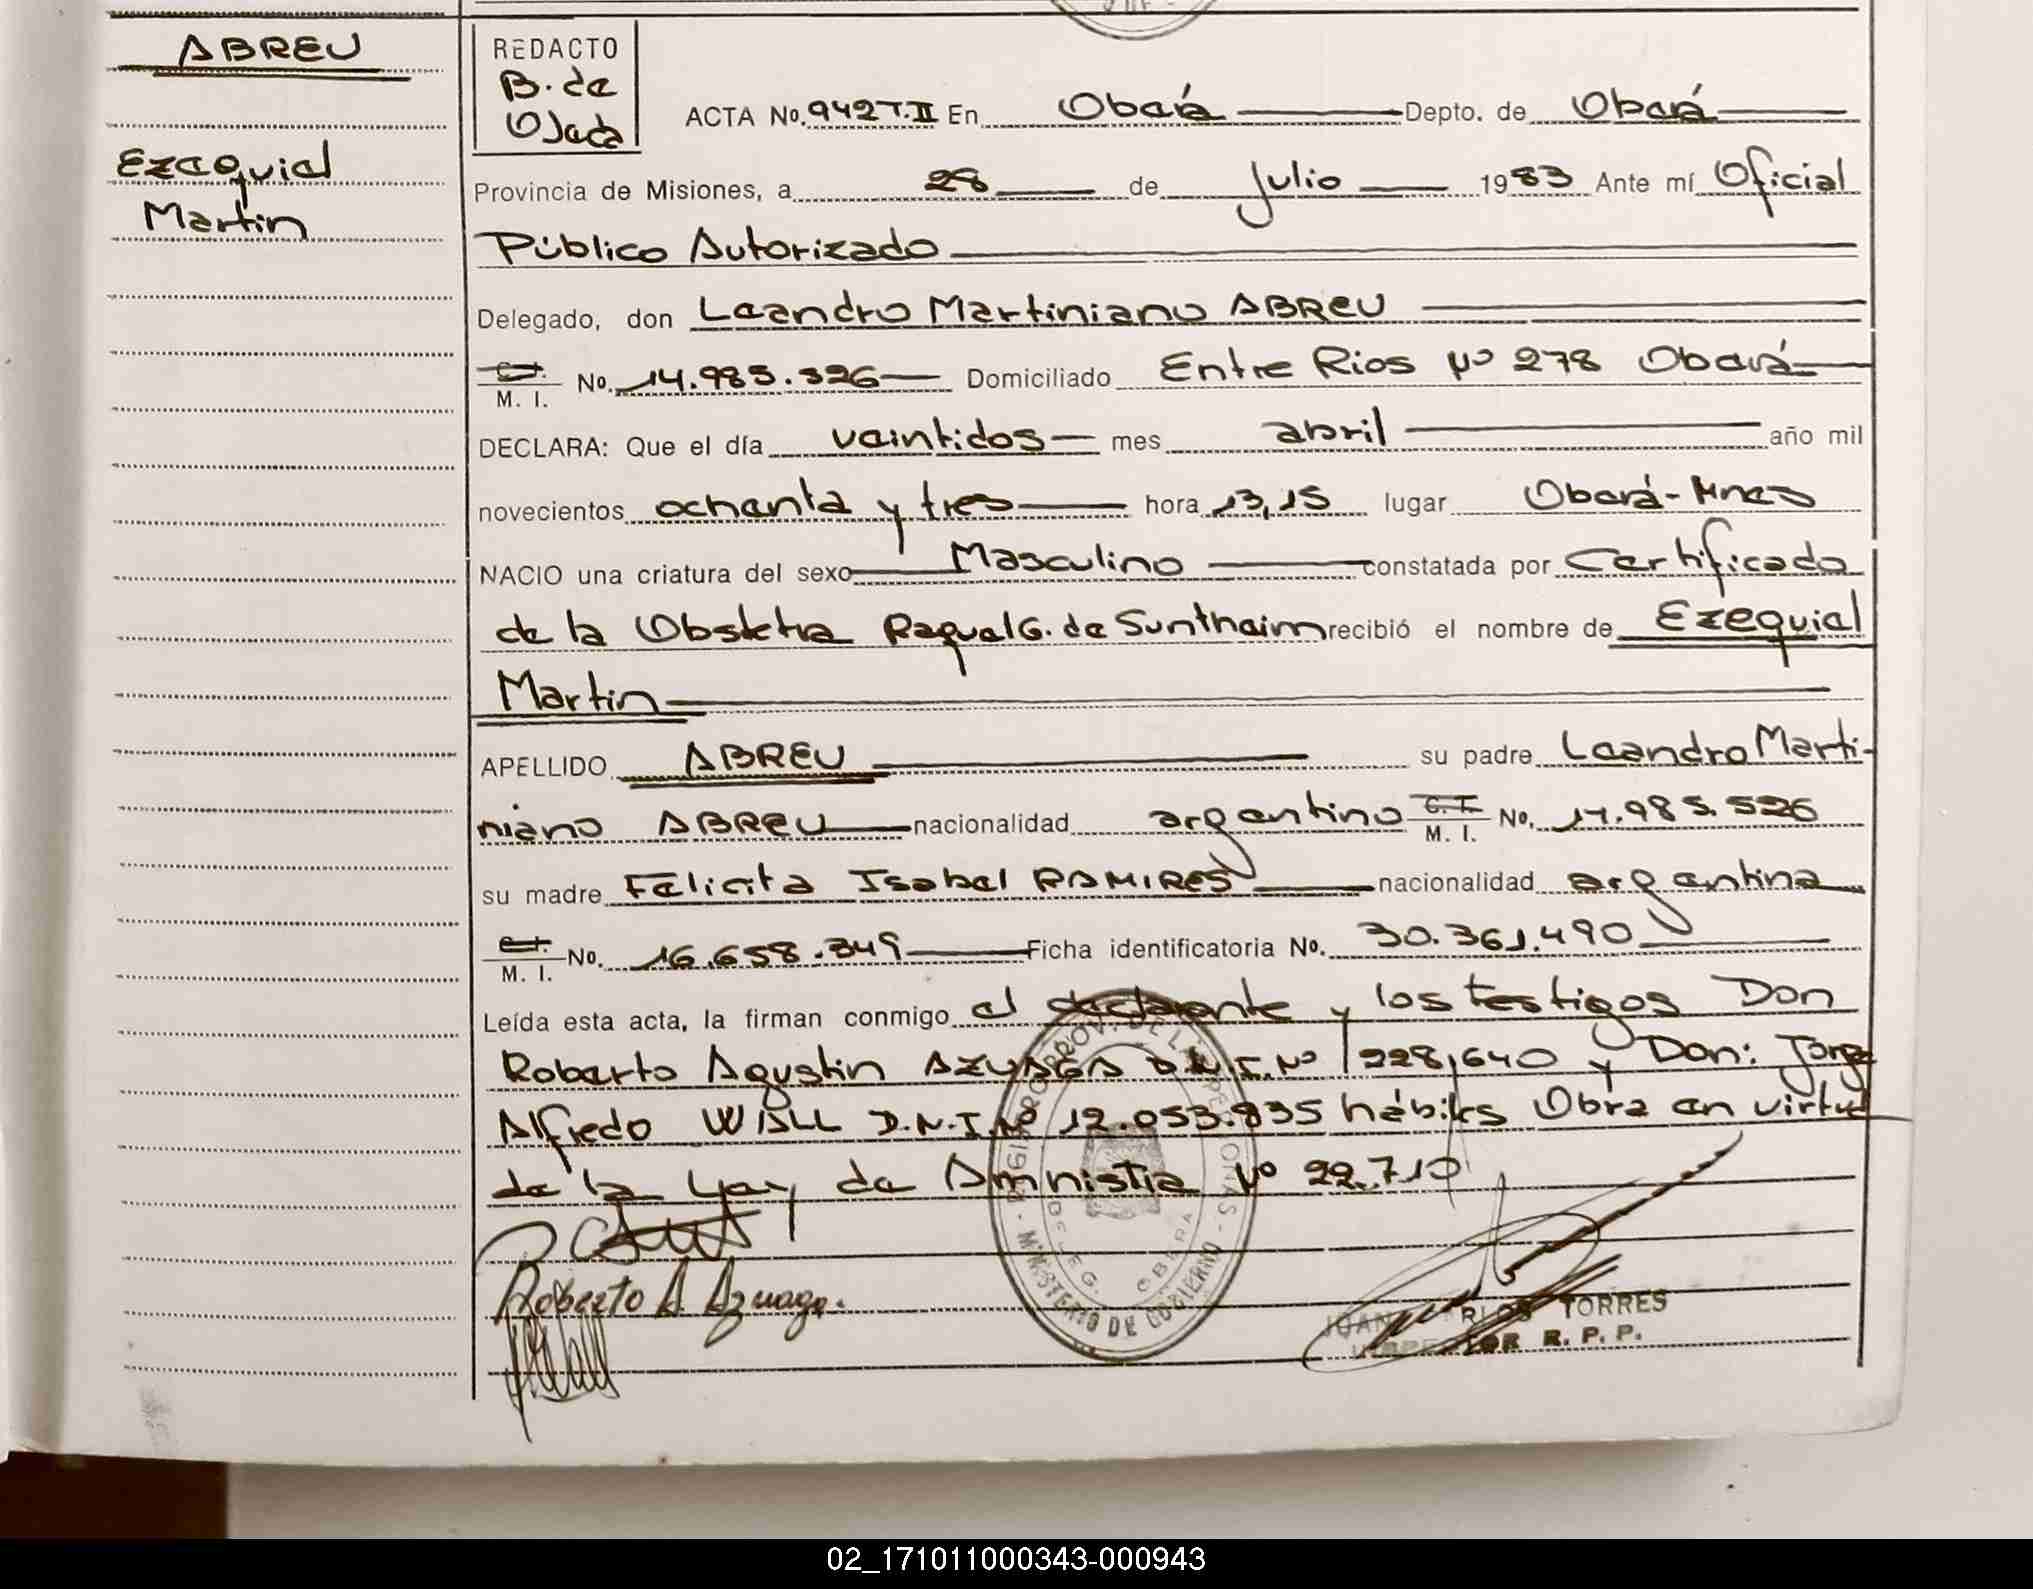 ABREU
Ezequiel
Martin
REDACTO
B. de
Ojeda
ACTA No. 942 T.II En Oberá Depto. de Oberá
Provincia de Misiones, a 28 de Julio 1983 Ante mí Oficial
Público Autorizado
Delegado, don Leandro Martiniano ABREU
C.I. M. I. No. 14.985.526 Domiciliado Entre Rios Nº 278 Oberá
DECLARA: Que el día veintidos mes abril año mil
novecientos ochenta y tres hora 13,15 lugar Oberá-Mnes
NACIO una criatura del sexo Masculino constatada por Certificado
de la Obstetra Raquel G. de Suntheim recibió el nombre de Ezequiel
Martin
APELLIDO ABREU su padre Leandro Marti-
niano ABREU nacionalidad argentino C.I. M. I. No. 14.985.526
su madre Felicita Isabel RAMIRES nacionalidad argentina
C.I. M. I. No. 16.658.349 Ficha identificatoria No. 30.361.490
Leída esta acta, la firman conmigo el declarante y los testigos Don
Roberto Agustin AZUAGA D.N.I. Nº 228,640 y Don: Jorge
Alfredo WALL D.N.I. Nº 12.053.835 hábiles Obra en virtud
de la Ley de Amnistia Nº 22.710
Roberto A. Azuaga.
REGISTRO PROV. DE LAS PERSONAS - MINISTERIO DE GOBIERNO
DELEG. OBERA
JUAN CARLOS TORRES
INSPECTOR R. P. P.
02_171011000343-000943